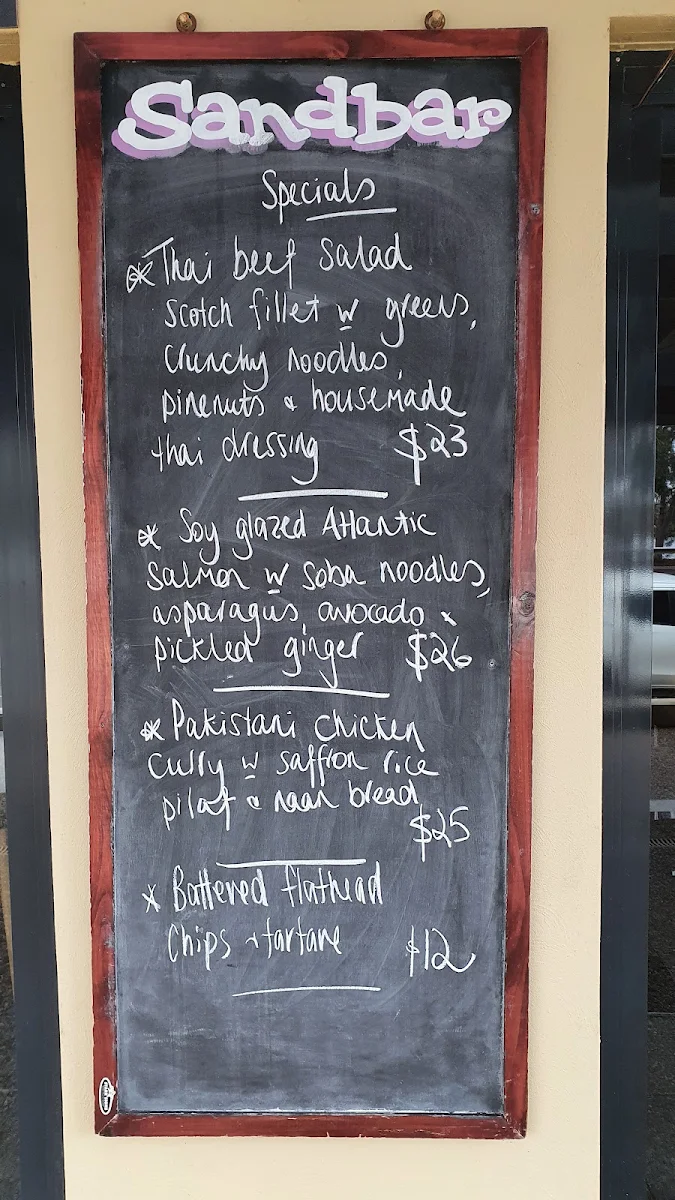 Sandbar
Specials
* Thai beef salad
scotch fillet w greens,
crunchy noodles,
pinenuts & housemade
thai dressing $23
* Soy glazed Atlantic
salmon w soba noodles,
asparagus, avocado &
pickled ginger $26
* Pakistani chicken
curry w saffron rice
pilaf & naan bread
$25
* Battered flathead
Chips + tartare $12